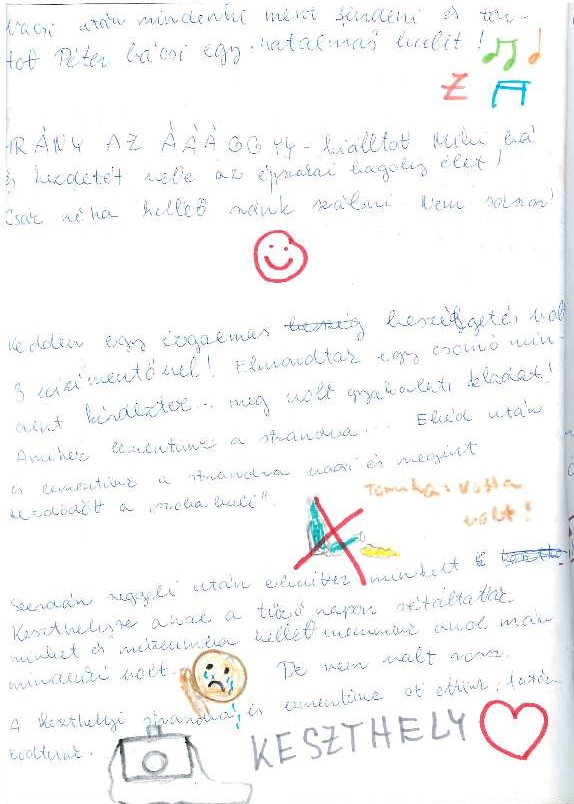 Vacsi után mindenki ment fürdeni és tar-
tot Péter bácsi egy hatalmas bulit!
Z
IRÁNY AZ ÁÁÁGGYY - kiálltot Miki bá
és kezdetét vette az éjszakai bagoly élet!
Csak néha kellet ránk szólni Nem sokszor!
Kedden egy izgalmas beszélgetés volt
3 vizimentőnél! Elmondtak egy csomó min-
dent kérdeztek.. meg volt gyakorlati feladat!
Amihez lementünk a strandra... Ebéd után
is lementünk a strandra vacsi és megint
kezdődött a „szoba buli".
Tominka: Vodka
volt!
Szerdán reggeli után elvittek minket
Keszthelyre ahol a tűző napon sétáltattak
minket és múzeumba kellet mennünk ahol már
mindenki volt. De nem valt rossz.
A keszthelyi strandra is lementünk ott ettünk,
KESZTHELY